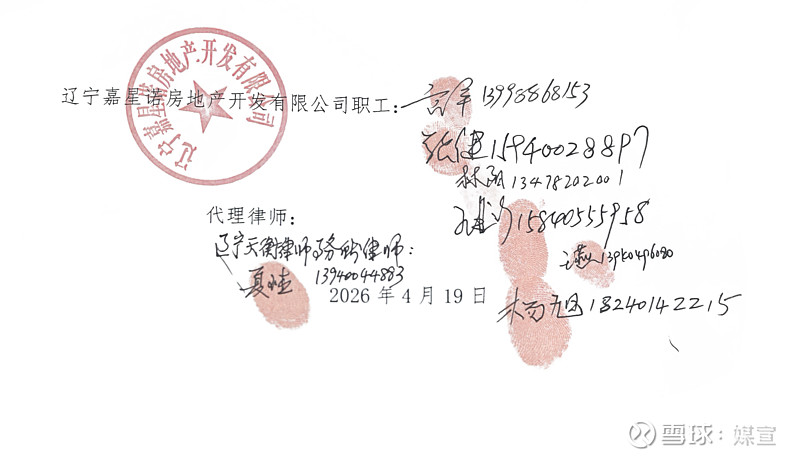 辽宁嘉星诺房地产开发有限公司
辽宁嘉星诺房地产开发有限公司职工：宫军 13998868153
张健 15940028897
林阳 13478202001
15840555958
代理律师：
辽宁天衡律师事务所律师：
夏 13940044883
2026年4月19日
杨旭 18240142215
雪球：媒宣